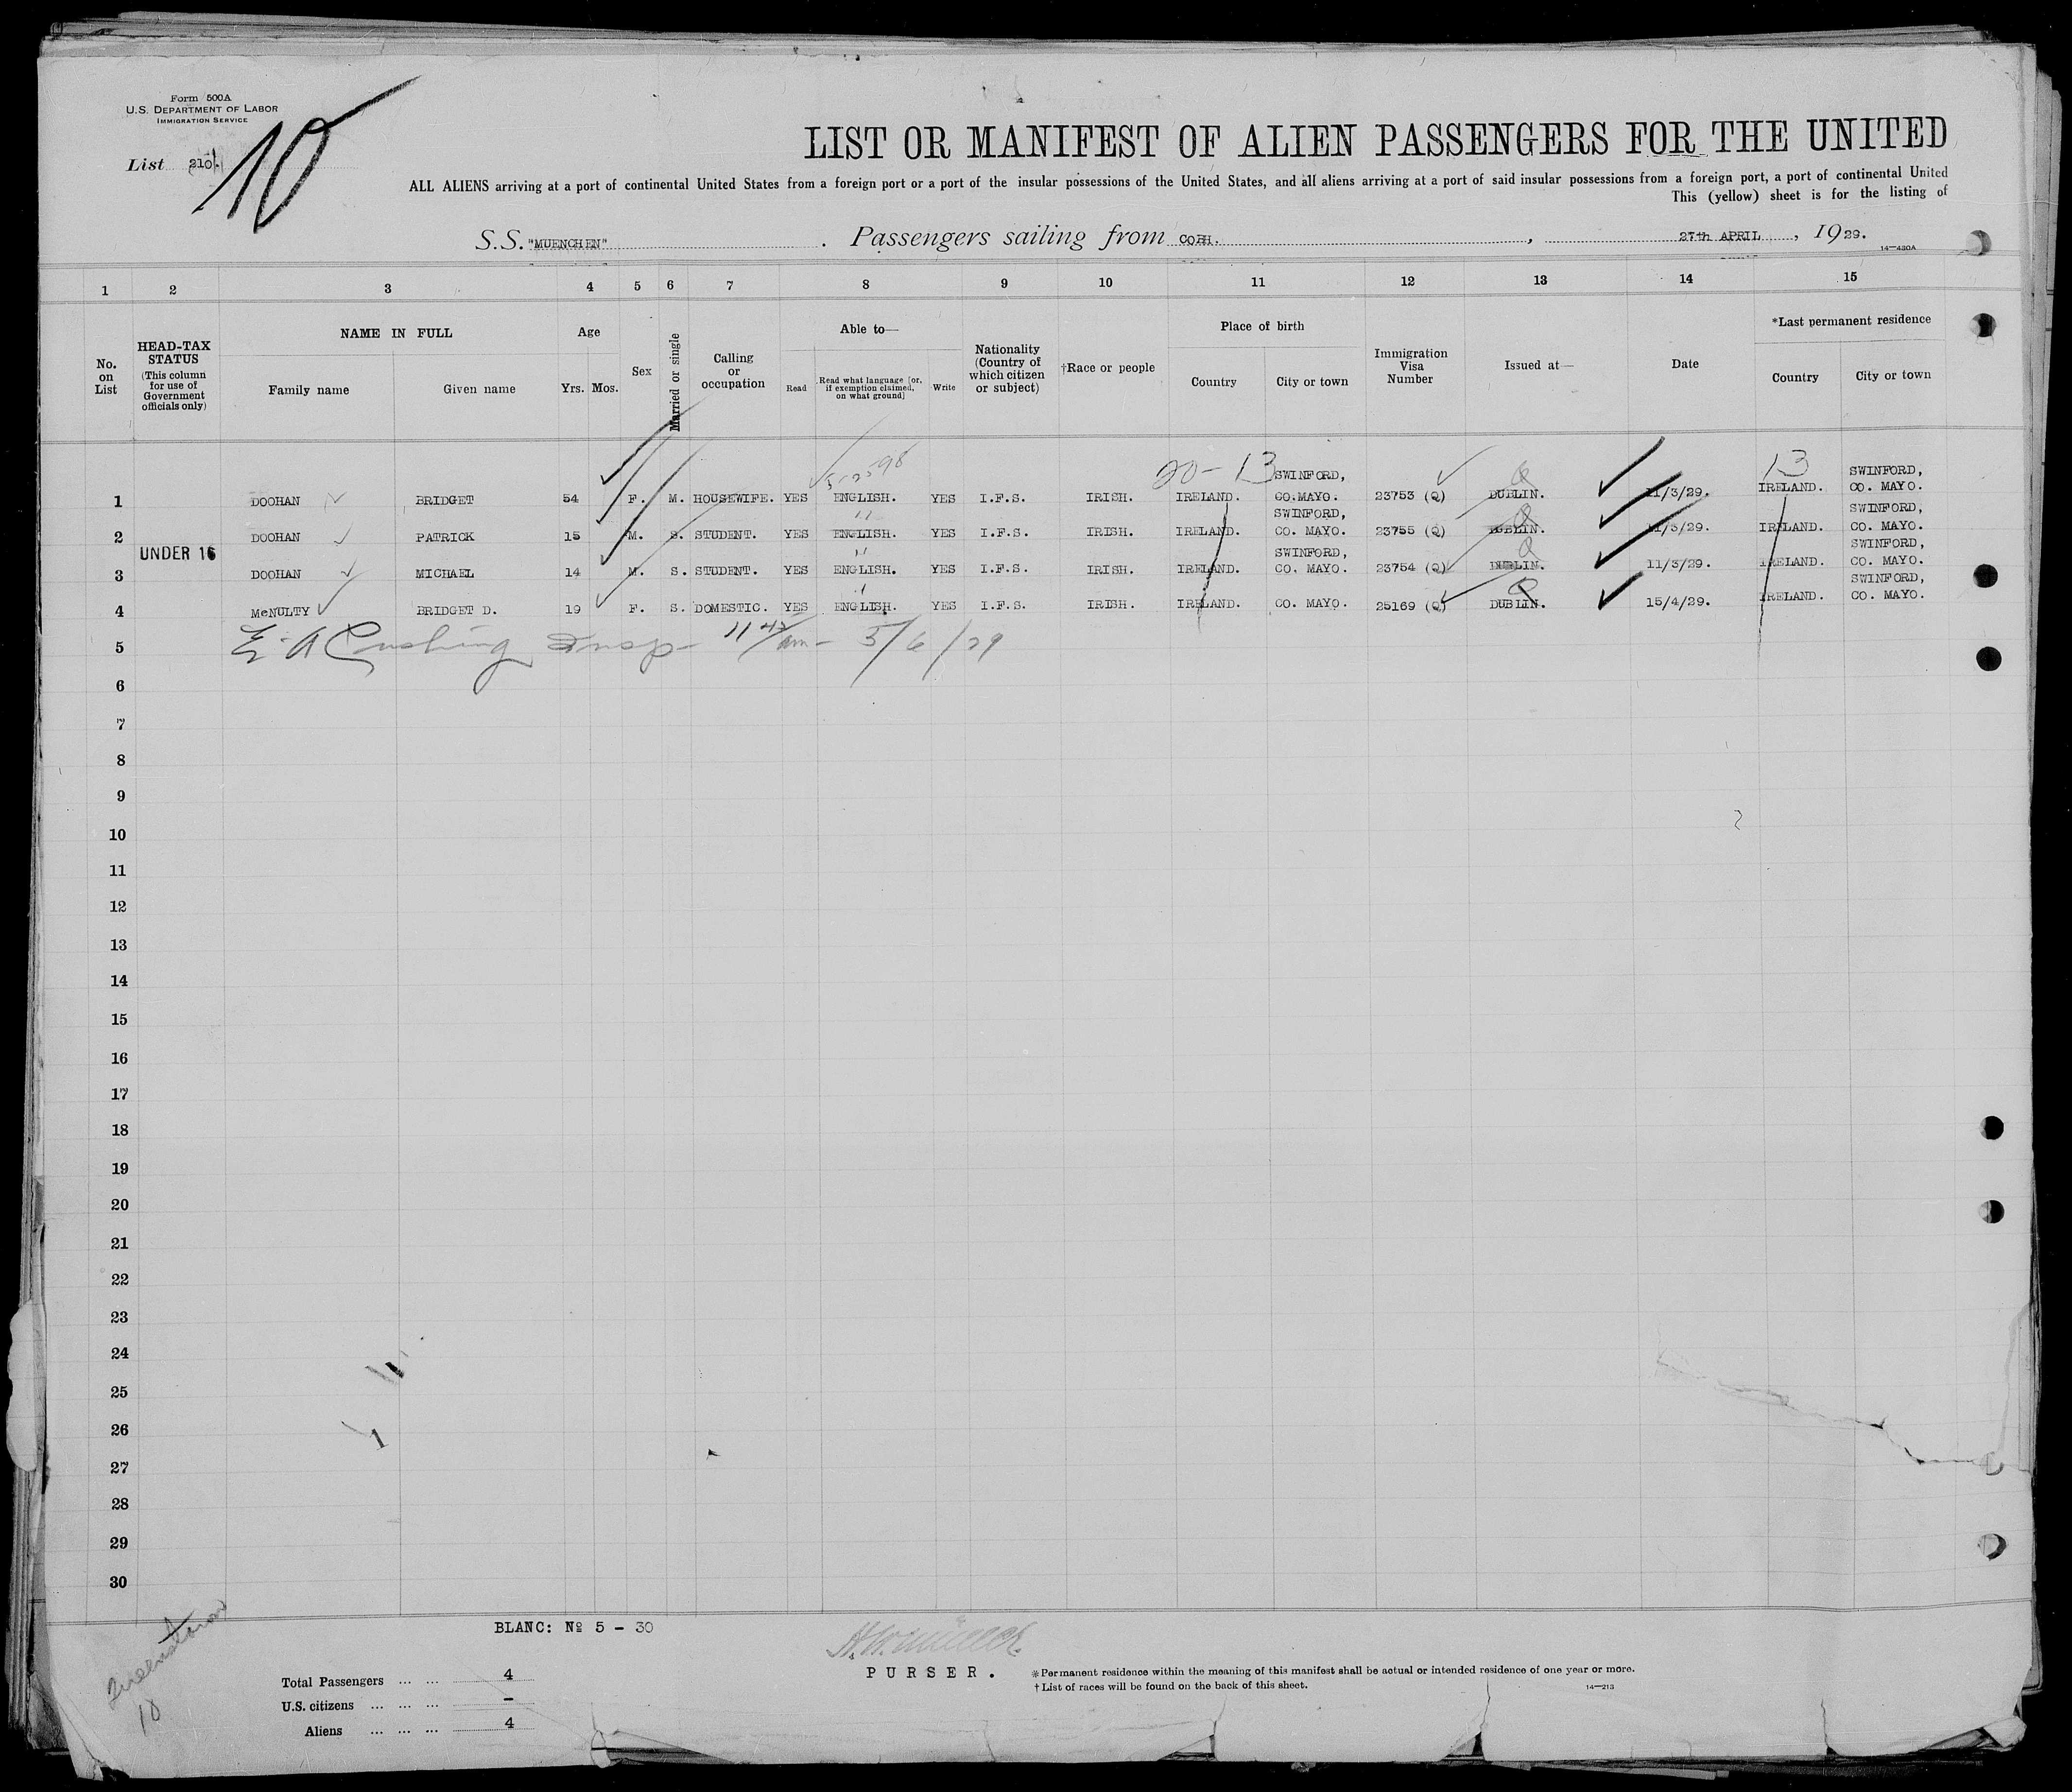 Form 500A
U.S. DEPARTMENT OF LABOR
IMMIGRATION SERVICE
List 210
10
LIST OR MANIFEST OF ALIEN PASSENGERS FOR THE UNITED
ALL ALIENS arriving at a port of continental United States from a foreign port or a port of the insular possessions of the United States, and all aliens arriving at a port of said insular possessions from a foreign port, a port of continental United
This (yellow) sheet is for the listing of
S.S. "MUENCHEN" . Passengers sailing from COBH. , 27th APRIL , 1929.
14—430A
1 2 3 4 5 6 7 8 9 10 11 12 13 14 15
No. on List
HEAD-TAX STATUS (This column for use of Government officials only)
NAME IN FULL
Family name
Given name
Age
Yrs. Mos.
Sex
Married or single
Calling or occupation
Able to—
Read
Read what language [or, if exemption claimed, on what ground]
Write
Nationality (Country of which citizen or subject)
†Race or people
Place of birth
Country
City or town
Immigration Visa Number
Issued at—
Date
*Last permanent residence
Country
City or town
20-13 13
1 DOOHAN BRIDGET 54 F. M. HOUSEWIFE. YES ENGLISH. YES I.F.S. IRISH. IRELAND. SWINFORD, CO.MAYO. 23753 (Q) DUBLIN. 11/3/29. IRELAND. SWINFORD, CO. MAYO.
2 DOOHAN PATRICK 15 M. S. STUDENT. YES ENGLISH. YES I.F.S. IRISH. IRELAND. SWINFORD, CO. MAYO. 23755 (Q) DUBLIN. 11/3/29. IRELAND. SWINFORD, CO. MAYO.
UNDER 16
3 DOOHAN MICHAEL 14 M. S. STUDENT. YES ENGLISH. YES I.F.S. IRISH. IRELAND. SWINFORD, CO. MAYO. 23754 (Q) DUBLIN. 11/3/29. IRELAND. SWINFORD, CO. MAYO.
4 McNULTY BRIDGET D. 19 F. S. DOMESTIC. YES ENGLISH. YES I.F.S. IRISH. IRELAND. CO. MAYO. 25169 (Q) DUBLIN. 15/4/29. IRELAND. SWINFORD, CO. MAYO.
5 E A Cushing Insp- 11 42/am - 5/6/29
6
7
8
9
10
11
12
13
14
15
16
17
18
19
20
21
22
23
24
25
26
27
28
29
30
BLANC: Nº 5 - 30
Queenstown
10
PURSER.
Total Passengers ... ... 4
U.S. citizens ... ... ... –
Aliens ... ... ... 4
*Permanent residence within the meaning of this manifest shall be actual or intended residence of one year or more.
†List of races will be found on the back of this sheet.
14—213